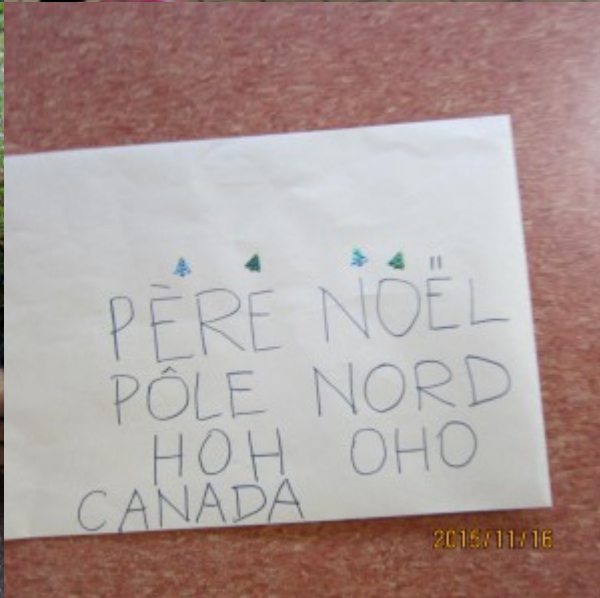 PÈRE NOËL
PÔLE NORD
HOH OHO
CANADA
2015/11/16